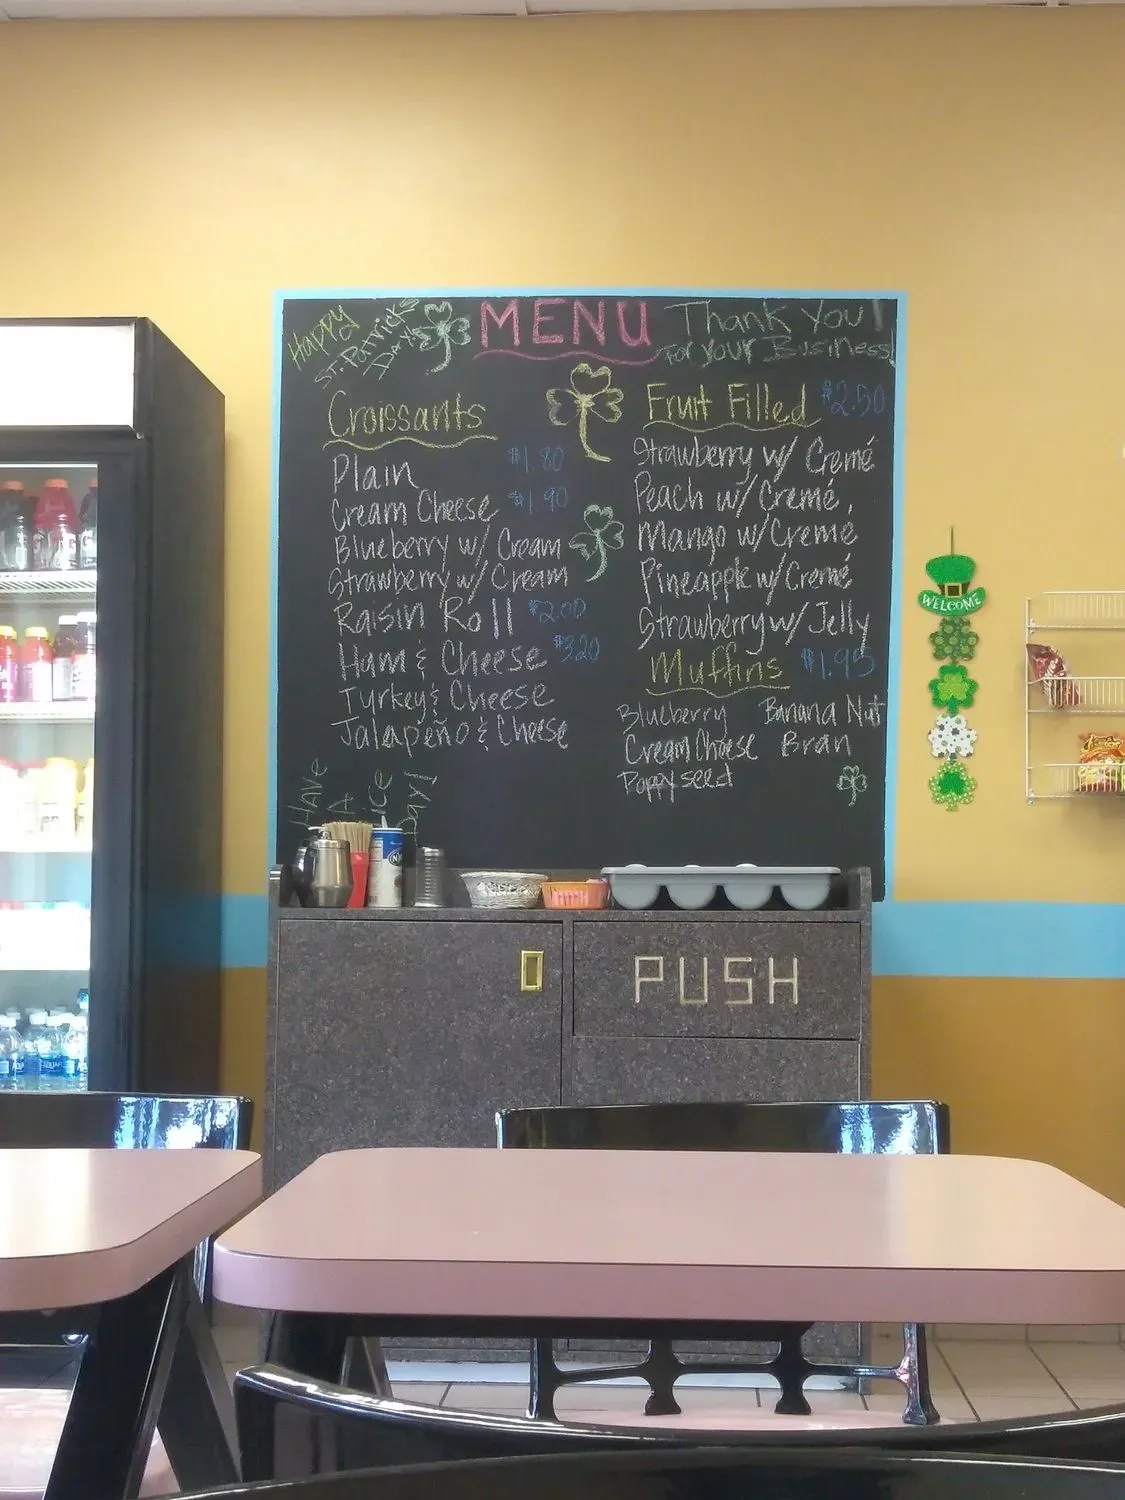 Happy
St. Patrick's
Day
MENU
Thank You!
For Your Business!
Croissants
Plain $1.80
Cream Cheese $1.90
Blueberry w/ Cream
Strawberry w/ Cream
Raisin Roll $2.00
Ham & Cheese $3.20
Turkey & Cheese
Jalapeño & Cheese
Have
A
ice
Day!
Fruit Filled $2.50
Strawberry w/ Cremé
Peach w/ Cremé,
Mango w/ Cremé
Pineapple w/ Cremé
Strawberry w/ Jelly
Muffins $1.95
Blueberry Banana Nut
Cream Cheese Bran
Poppyseed
WELCOME
PUSH